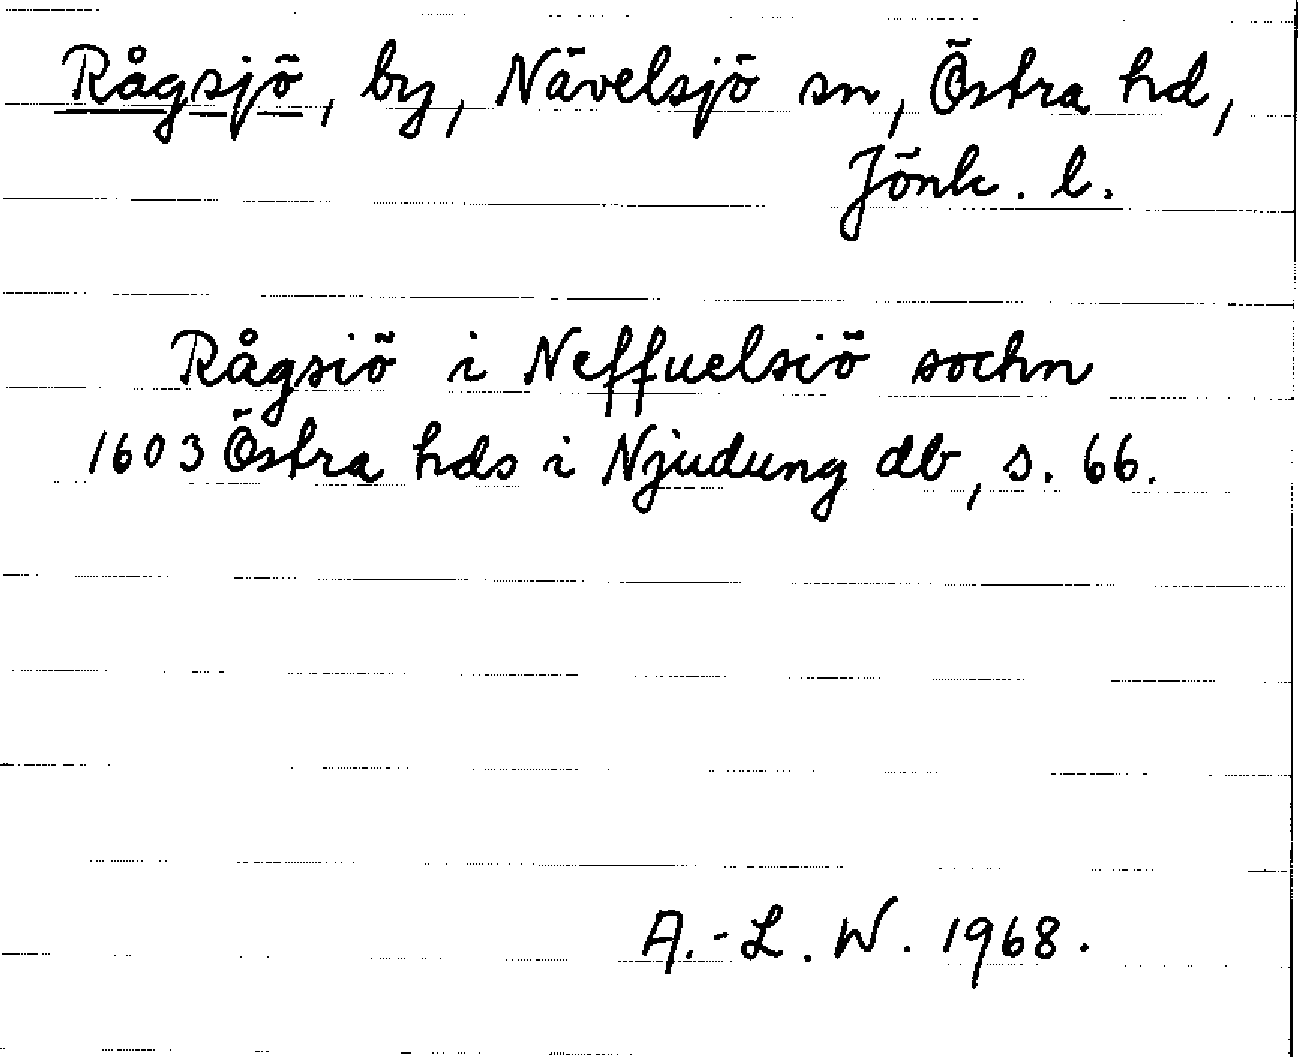 Rågsjö, by, Nävelsjö sn, Östra hd,
Jönk. l.
Rågsiö i Neffuelsiö sochn
1603 Östra hds i Njudung db, s. 66.
A.-L. W. 1968.